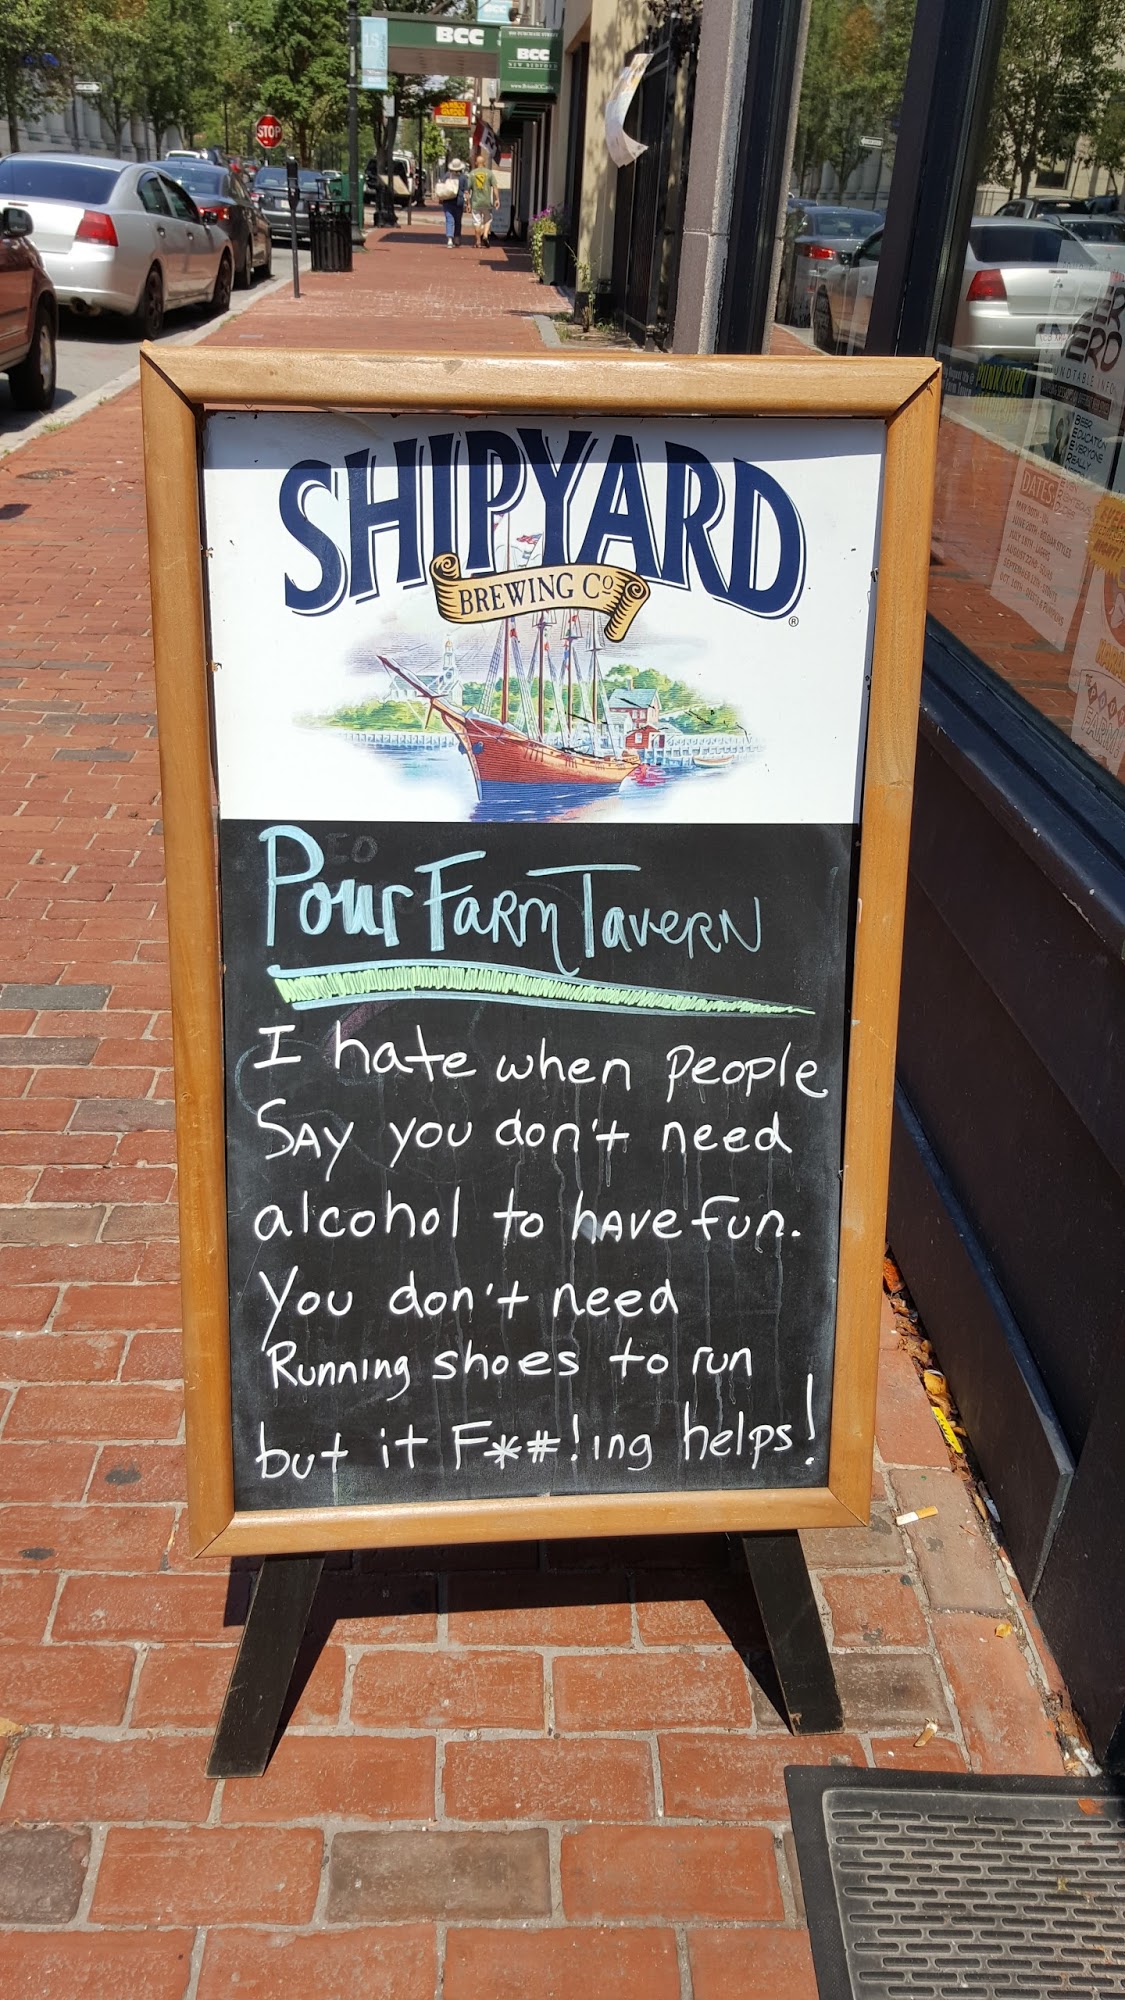 BCC
BCC
NEW BEDFORD
STOP
SHIPYARD
BREWING Co
®
Pour Farm Tavern
I hate when people
Say you don't need
alcohol to have fun.
You don't need
Running shoes to run
but it F*#!ing helps!
BEER
EDUCATION
EVERYONE
REALLY
DATES